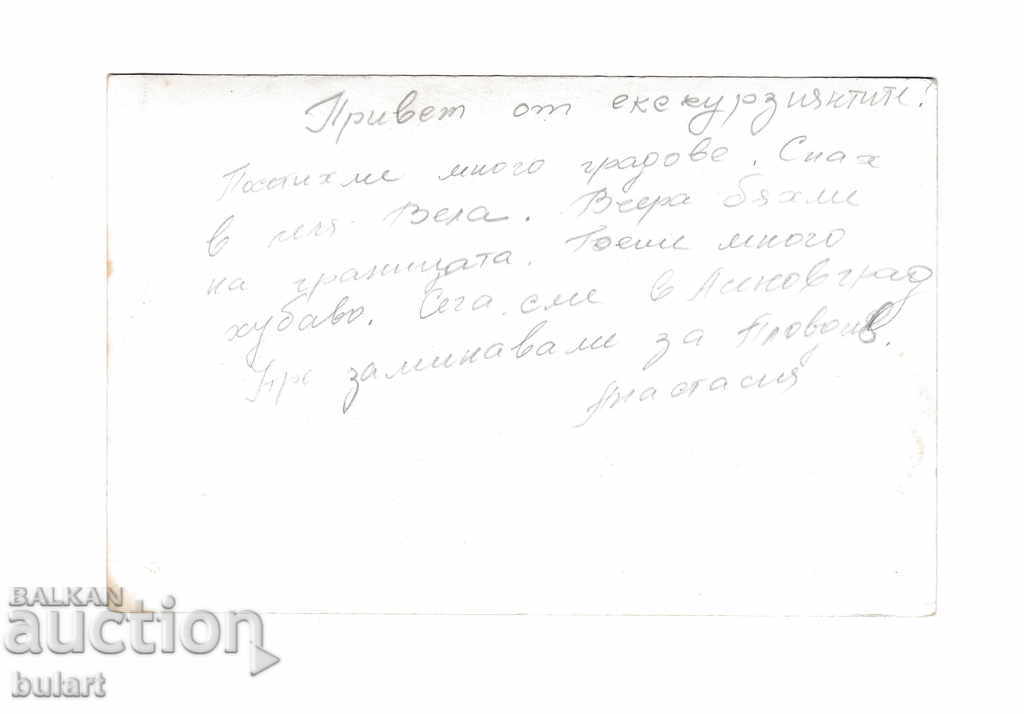 Привет от екскурзиянтите!
много градове. Спах
в леля Вела. Вчера бяхме
на границата. Беше много
хубаво. Сега сме в Асеновград
заминаваме за Пловдив.
Анастасия
BALKAN
auction
bulart